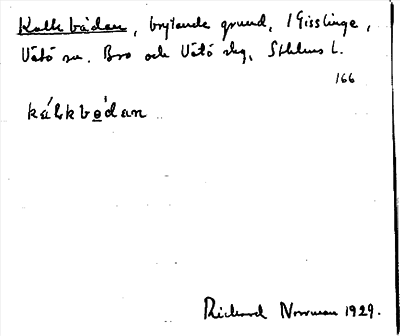 Kalkbådan, brytande grund, 1 Gisslinge,
Vätö sn. Bro och Vätö skg, Sthlms L.
166
kálkbo̲dan
Rickard Norrman 1929.